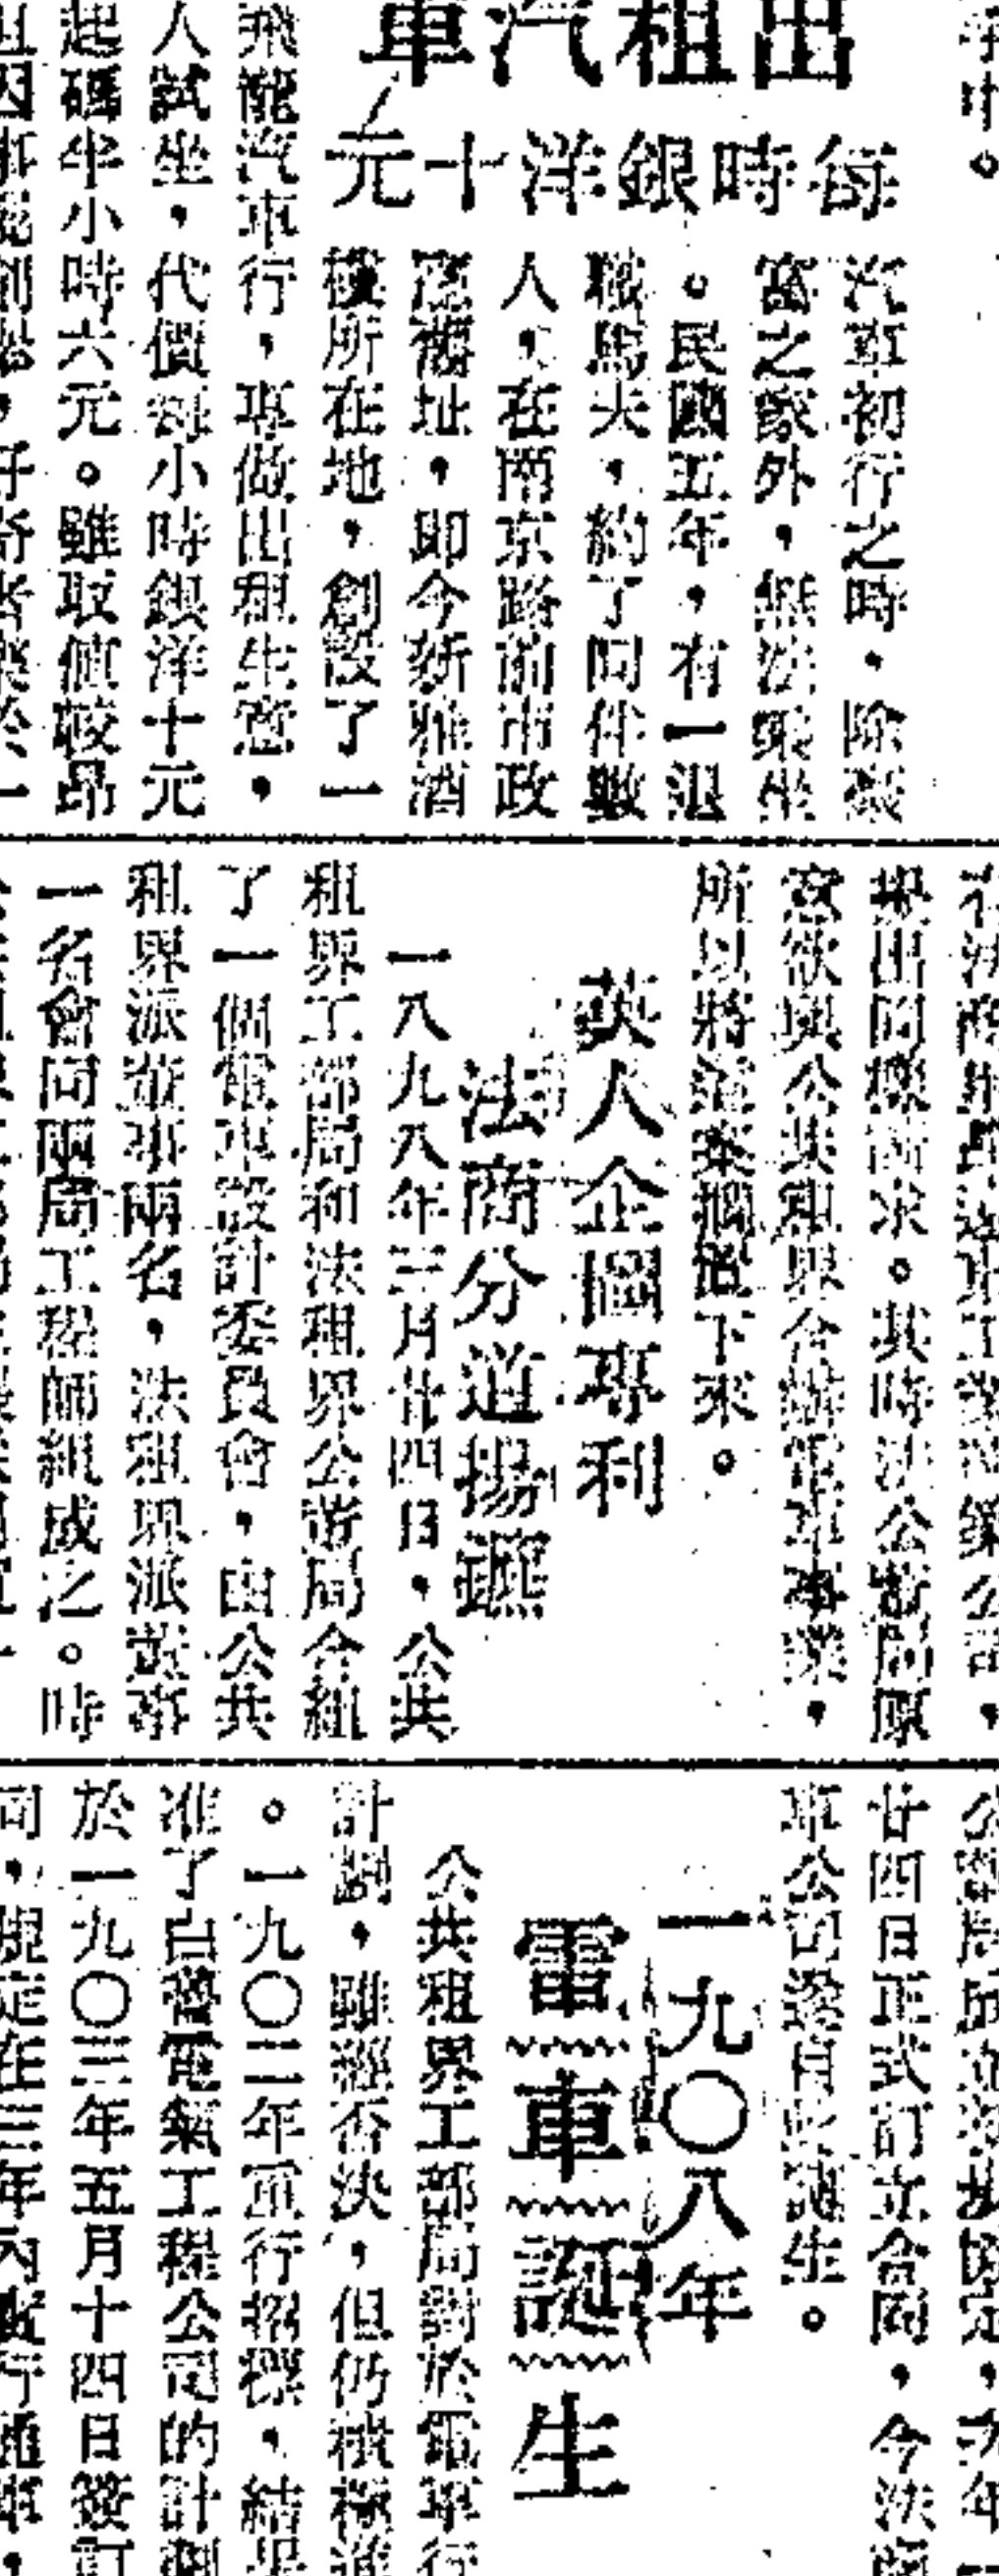 字中。
出租汽車
每時銀洋十元
汽車初行之時，除豪
富之家外，無法乘坐
。民國五年，有一退
職馬夫，約了同伴數
人，在南京路前市政
廳舊址，即今新雅酒
樓所在地，創設了一
飛龍汽車行，專做出租生意，
人試坐，代價每小時銀洋十元
起碼半小時六元。雖取值較昂
果出同樣要求。其時法公董局原
意欲與公共租界合辦電車事業，
所以將這案擱置下來。
英人企圖專利
法商分道揚鑣
一八九八年三月廿四日，公共
租界工部局和法租界公董局合組
了一個電車設計委員會，由公共
租界派董事兩名，法租界派董事
一名會同兩局工程師組成之。時
廿四日正式訂立合同，今法商
車公司遂自此誕生。
一九〇八年
電車誕生
公共租界工部局對於電車行
計劃，雖經否決，但仍積極進
。一九〇二年重行招標，結果
准了白魯電氣工程公司的計劃
於一九〇三年五月十四日簽訂
同，規定在三年內實行通車，